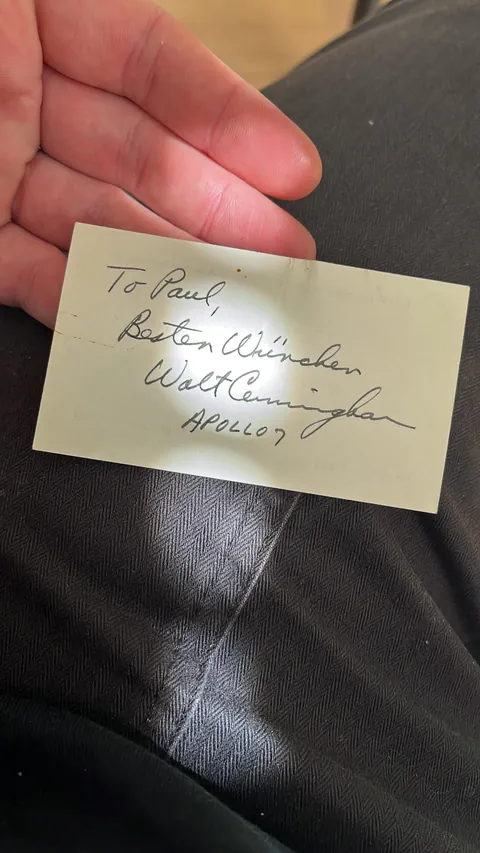 To Paul,
Besten Wünchen
Walt Cunningham
APOLLO 7